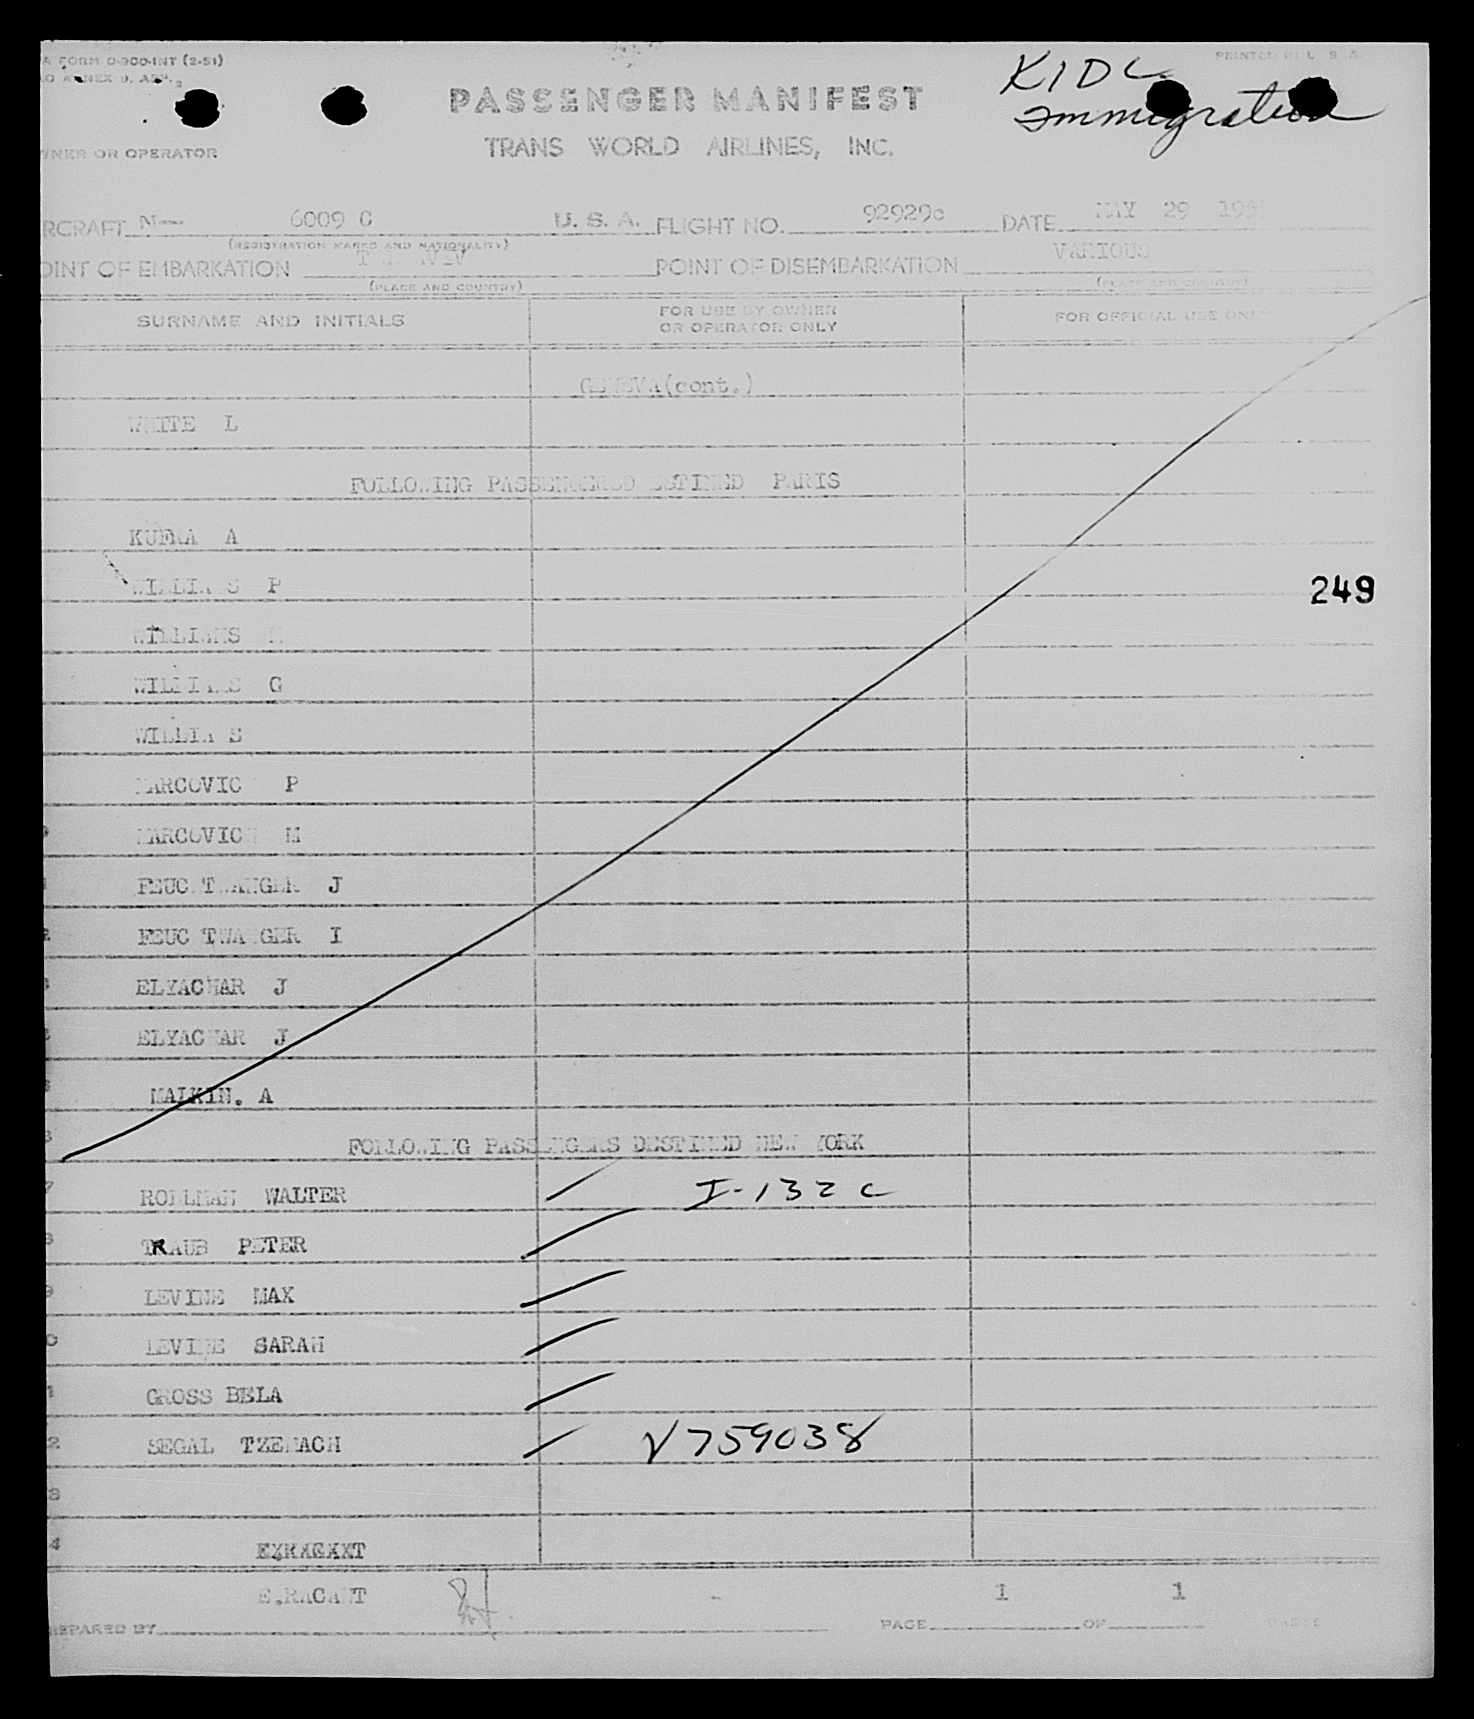 A FORM 0-300-INT (2-51)
PRINTED IN U. S. A.
KIDL
Immigration
PASSENGER MANIFEST
TRANS WORLD AIRLINES, INC.
WNER OR OPERATOR
RCRAFT N-- 6009 C U. S. A. FLIGHT NO. 92929c DATE MAY 29 195
(REGISTRATION MARKS AND NATIONALITY)
OINT OF EMBARKATION T VIV POINT OF DISEMBARKATION VARIOUS
(PLACE AND COUNTRY) (PLACE AND COUNTRY)
SURNAME AND INITIALS FOR USE BY OWNER OR OPERATOR ONLY FOR OFFICIAL USE ONLY
GENEVA(cont.)
WHITE L
FOLLOWING PASSENGERS DESTINED PARIS
KUBRA A
WILLIA S P
249
WILLIAMS M
WILLIAMS G
WILLIA S
MARCOVIC P
MARCOVIC M
FEUC TWANGER J
FEUC TWA GER I
ELYACHAR J
ELYACHAR J
MALKIN. A
FOLLOWING PASSENGERS DESTINED NEW YORK
7 ROLLMAN WALTER I-132 C
8 TRAUB PETER
9 LEVINE MAX
0 LEVINE SARAH
1 GROSS BELA
2 SEGAL TZEMACH V759038
3
4 EXRAGAXT
E.RACANT - 1 1
REPARED BY PAGE OF PAGES